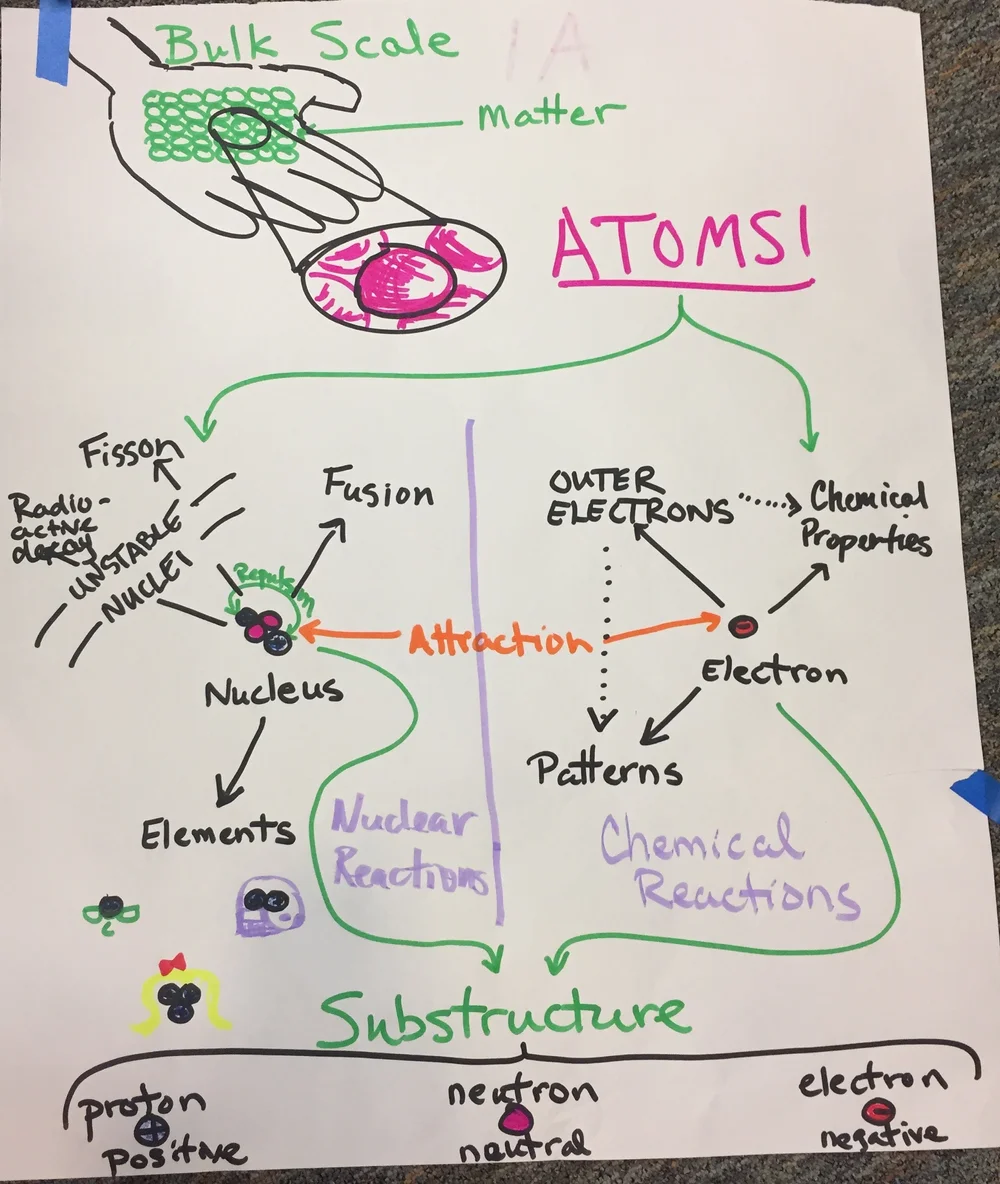 Bulk Scale
1A
matter
ATOMS!
Fisson
Fusion
Radio-
active
decay
UNSTABLE
NUCLEI
Repulsion
OUTER
ELECTRONS
Chemical
Properties
Attraction
Nucleus
Electron
Patterns
Elements
Nuclear
Reactions
Chemical
Reactions
Substructure
proton
+
positive
neutron
neutral
electron
-
negative